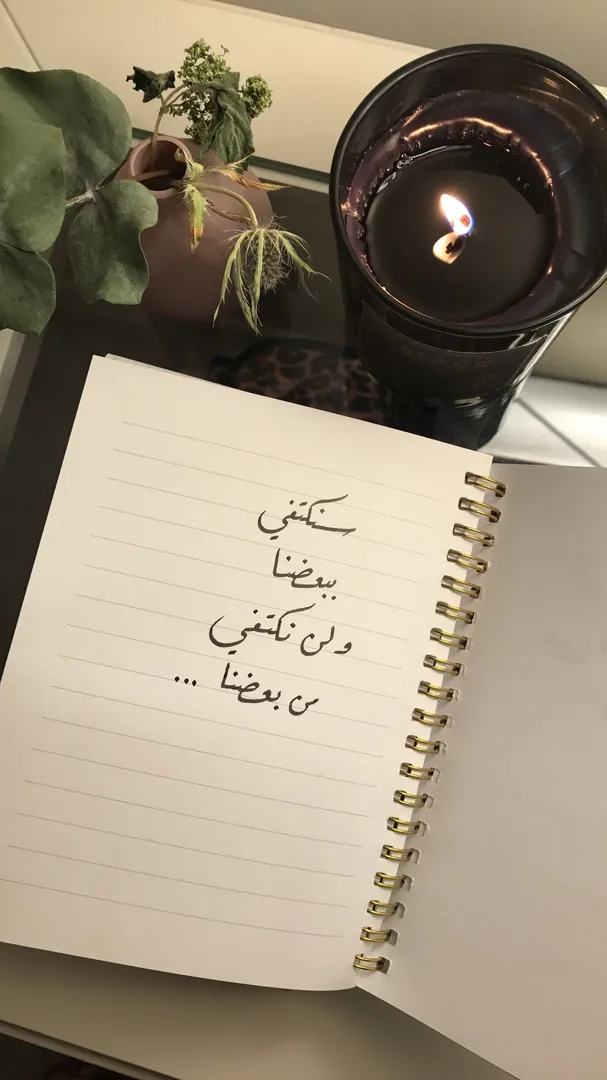 سنكتفي
ببعضنا
ولن نكتفي
من بعضنا ...